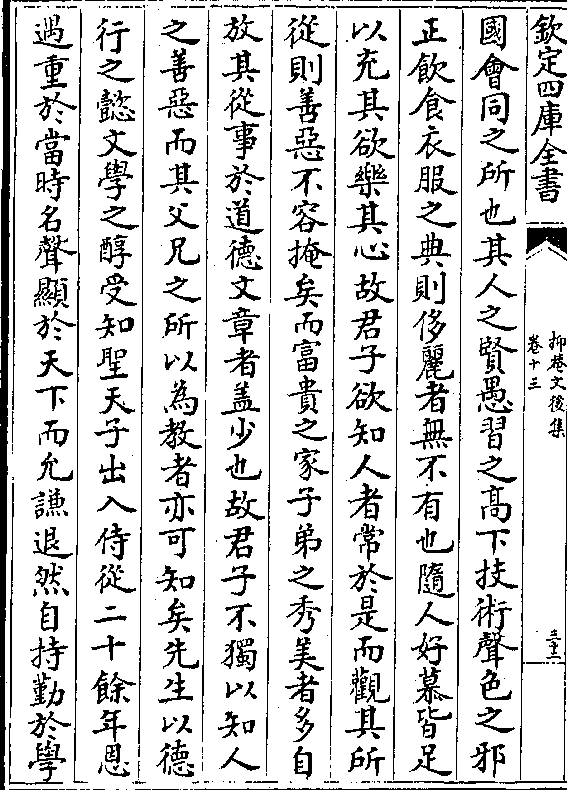 欽定四庫全書
抑菴文後集
卷十三
國會同之所也其人之賢愚習之高下技術聲色之邪
正飲食衣服之典則侈麗者無不有也隨人好慕皆足
以充其欲樂其心故君子欲知人者常於是而觀其所
從則善惡不容掩矣而富貴之家子弟之秀美者多自
放其從事於道德文章者蓋少也故君子不獨以知人
之善惡而其父兄之所以為教者亦可知矣先生以德
行之懿文學之醇受知聖天子出入侍從二十餘年恩
遇重於當時名聲顯於天下而允謙退然自持勤於學